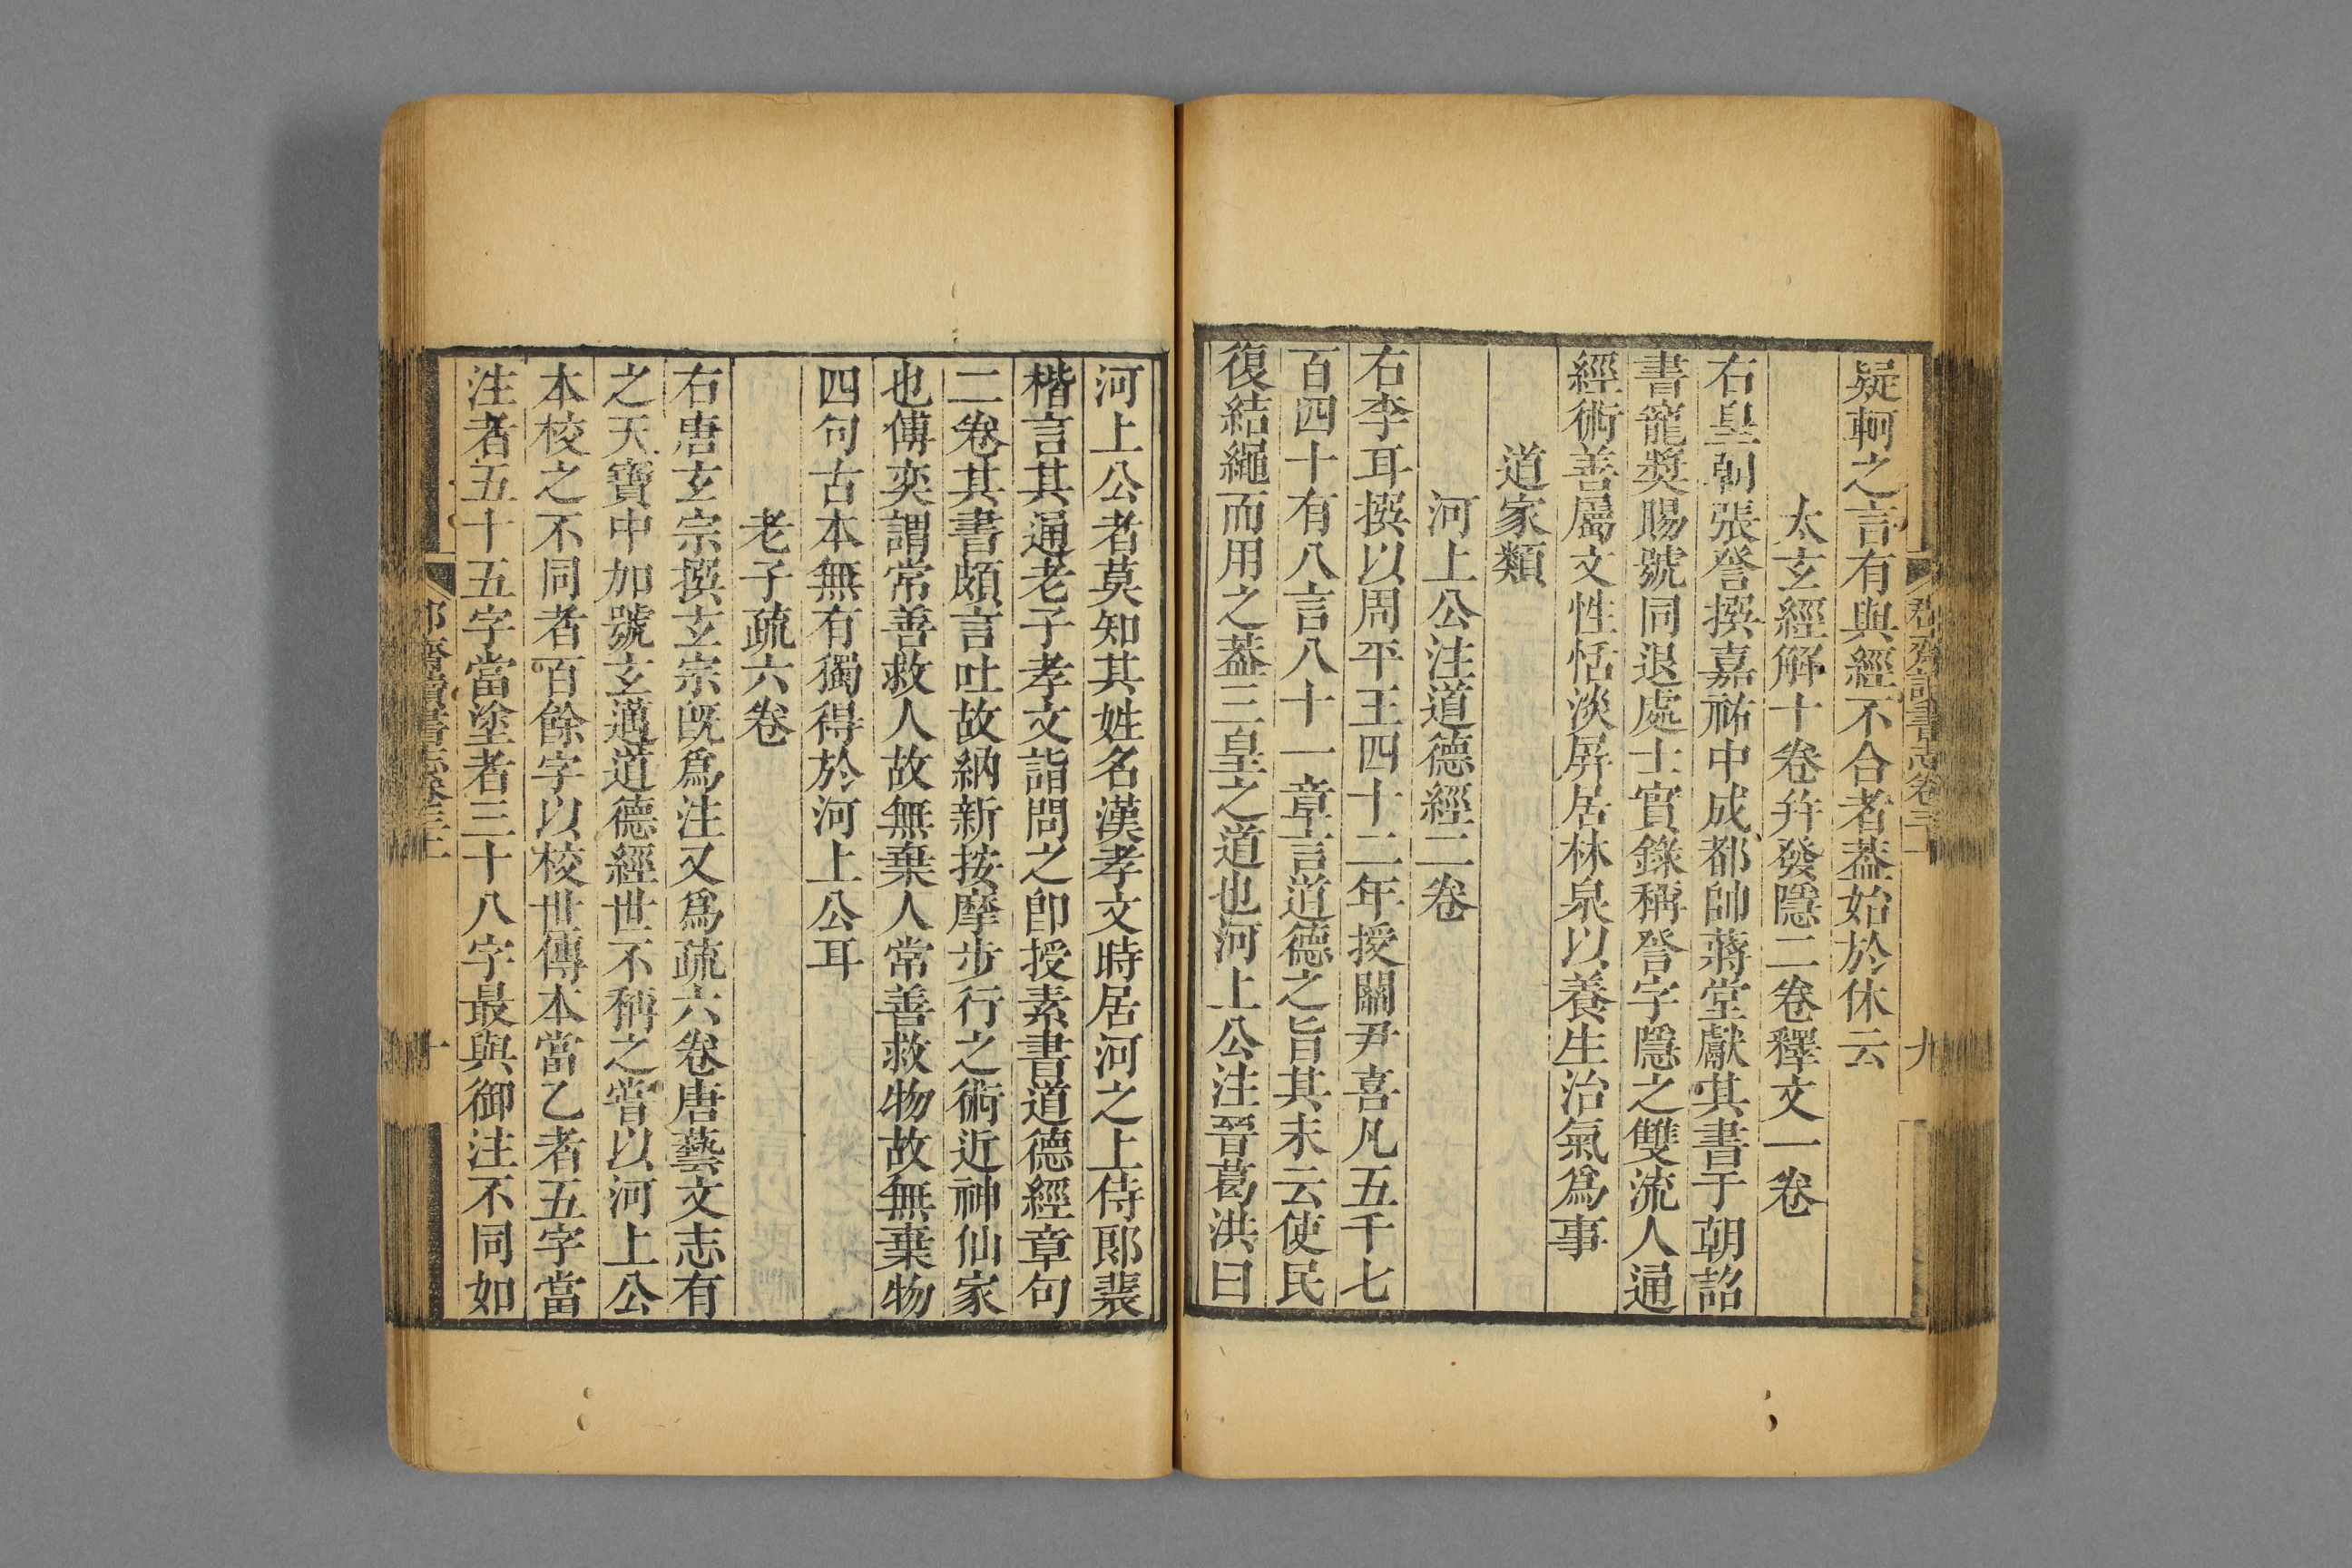 疑軻之言有與經不合者葢始於休云
太玄經解十卷幷發隱二卷釋文一卷
右皇朝張詧撰嘉祐中成都帥蔣堂獻其書于朝詔
書寵奬賜號同退處士實錄稱詧字隱之雙流人通
經術善屬文性恬淡屏居林泉以養生治氣爲事
道家類
河上公注道德經二卷
右李耳撰以周平王四十二年授關尹喜凡五千七
百四十有八言八十一章言道德之旨其末云使民
復結繩而用之葢三皇之道也河上公注晉葛洪曰
河上公者莫知其姓名漢孝文時居河之上侍郎裴
楷言其通老子孝文詣問之卽授素書道德經章句
二卷其書頗言吐故納新按摩步行之術近神仙家
也傅奕謂常善救人故無棄人常善救物故無棄物
四句古本無有獨得於河上公耳
老子疏六卷
右唐玄宗撰玄宗旣爲注又爲疏六卷唐藝文志有
之天寶中加號玄邁道德經世不稱之嘗以河上公
本校之不同者百餘字以校世傳本當乙者五字當
注者五十五字當塗者三十八字最與御注不同如